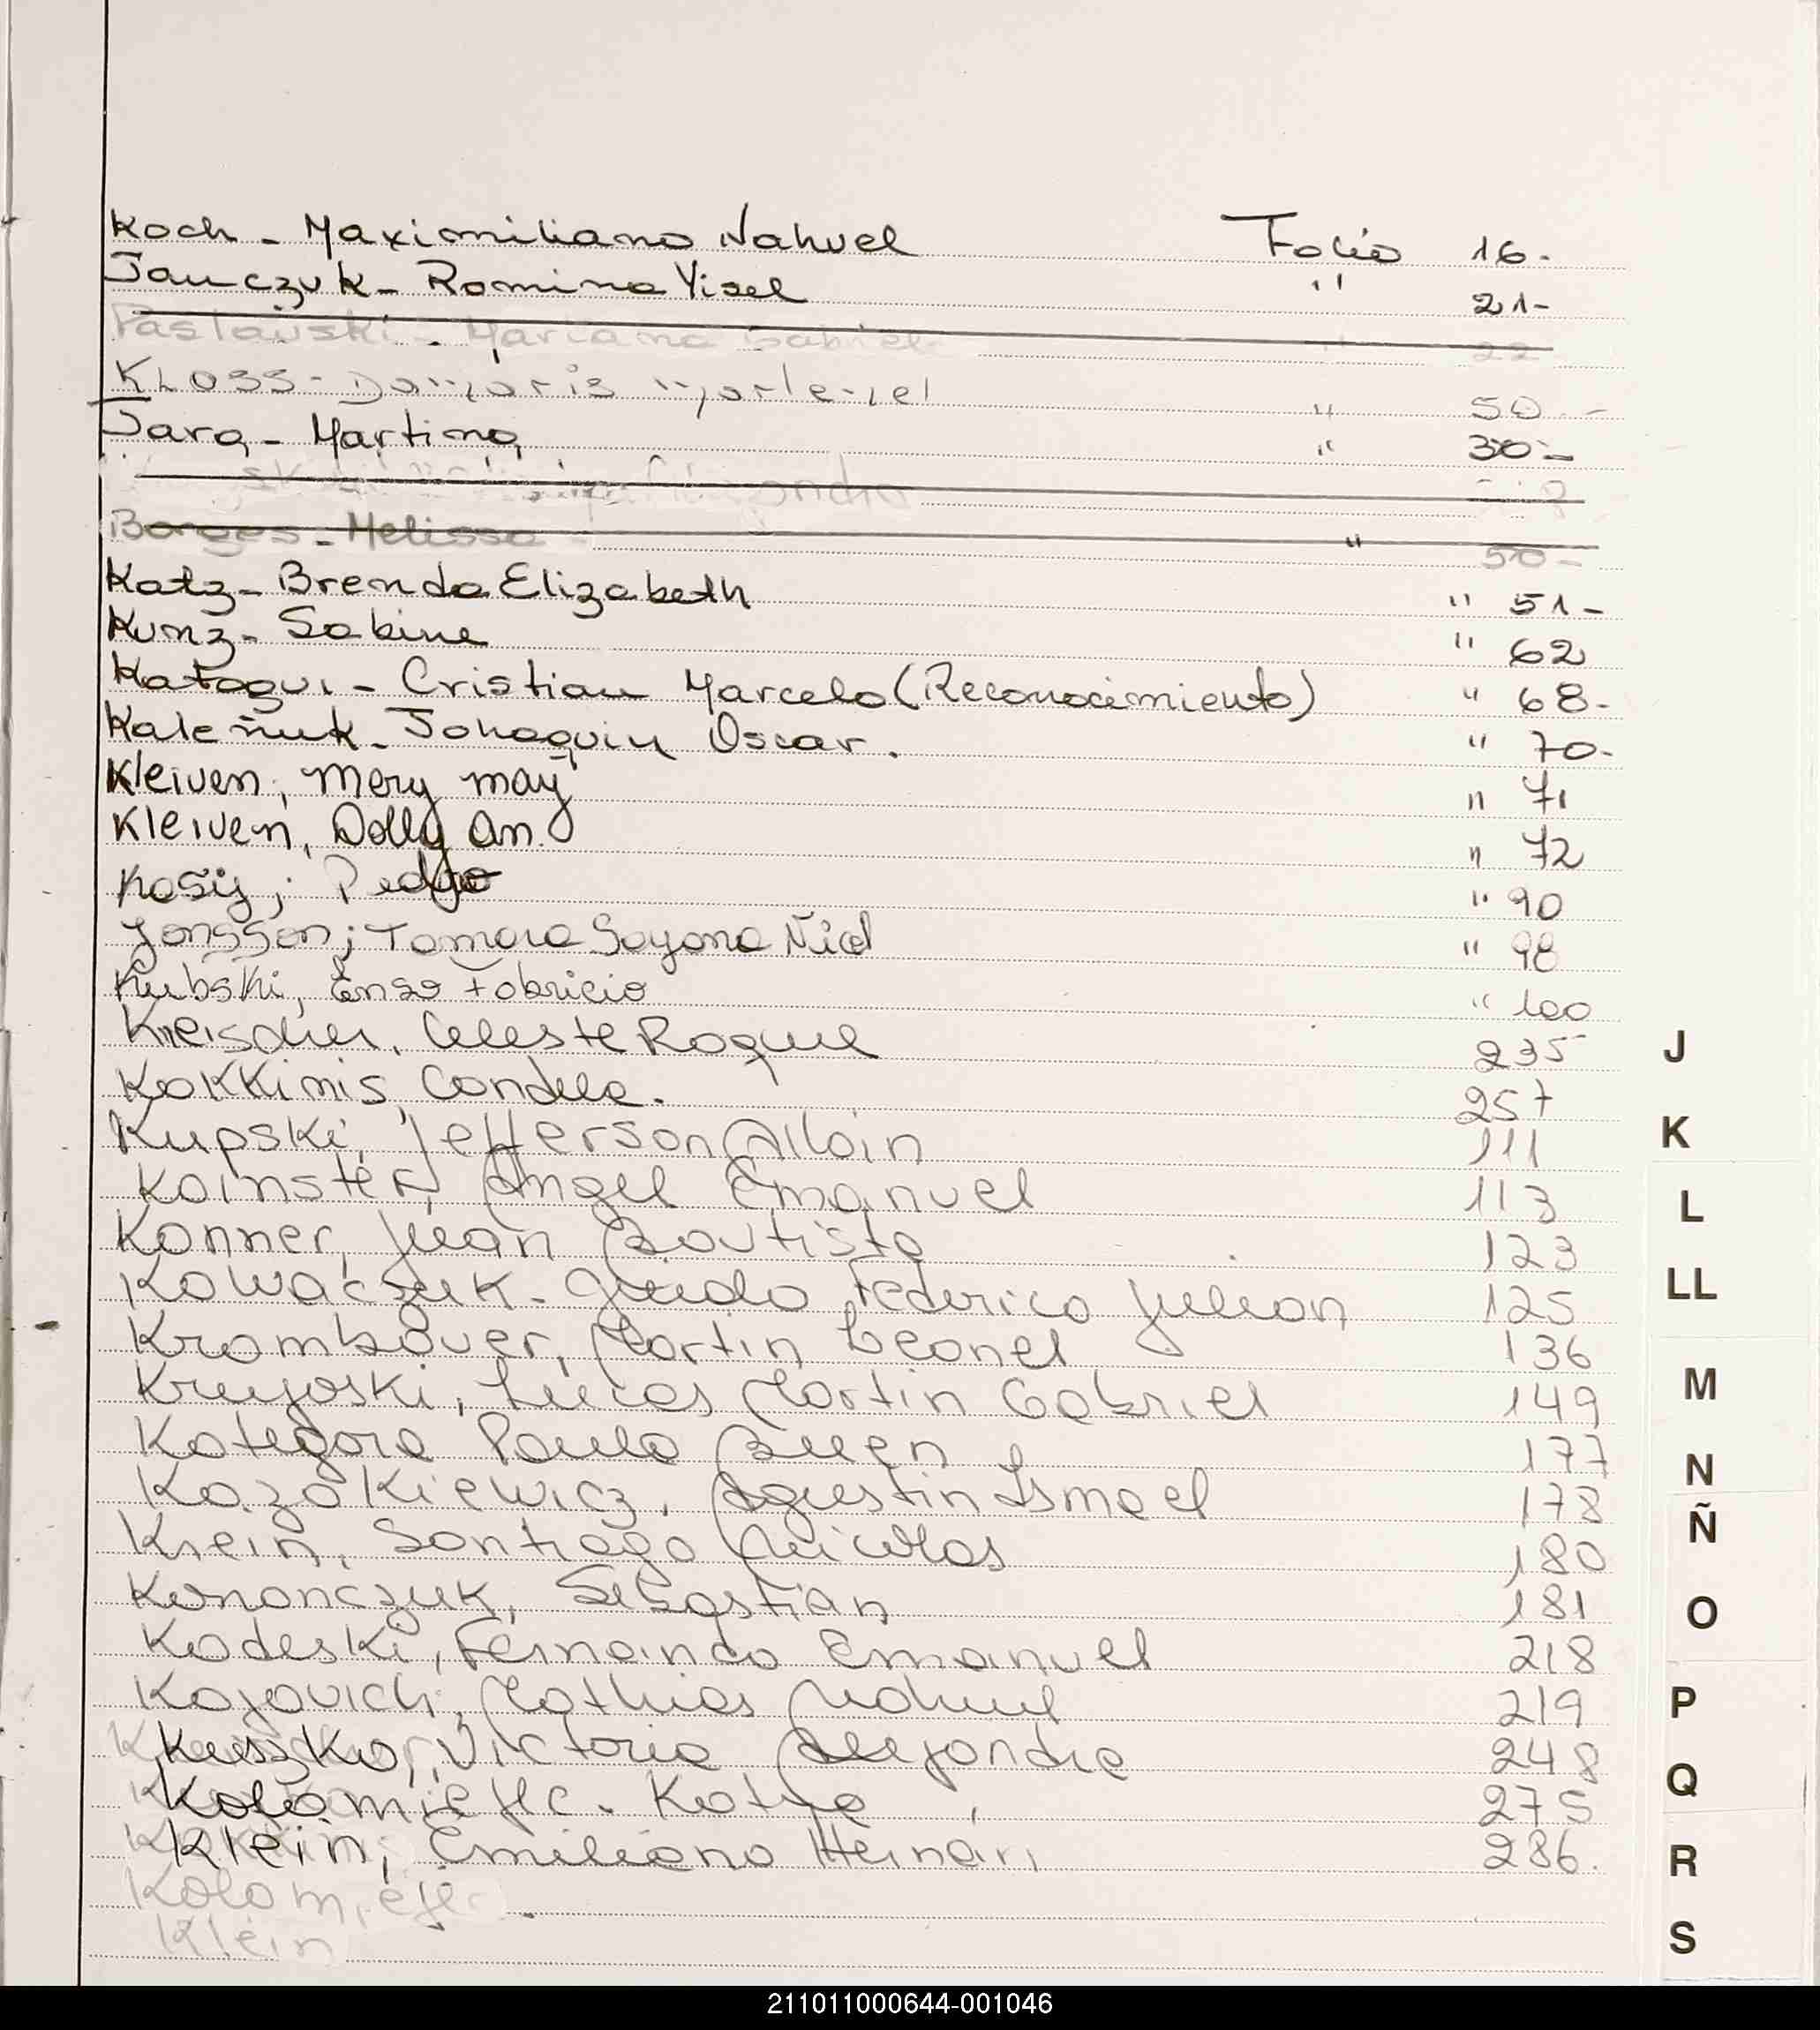 Koch - Maximiliano Nahuel Folio 16.
Jauczuk - Romina Yisel " 21-
Paslauski - Mariano Gabriel " 22
Kloss - Damaris Marlenel " 50 -
Jara - Martina " 30 -
Borges - Melissa " 50 -
Katz - Brenda Elizabeth " 51 -
Kunz - Sabine " 62
Katogui - Cristian Marcelo (Reconocimiento) " 68 -
Kaleñuk - Johaquin Oscar. " 70 -
Kleiven, Mery may " 71
Kleiven, Dolly An. " 72
Kosij; Pedro " 90
Jonsson; Tamara Soyona Ñid " 98
Kubski, Enzo Fabricio " 100
Kreischer, Celeste Roque 235
Kokkinis, Candela. 257
Kupski, Jefferson Alloin 111
Koinster, Angel Emanuel 113
Konner, Juan Bautista 123
Kowaczuk - Guido Federico Julian 125
Krombauer, Martin Leonel 136
Kruyoski, Lucas Martin Gabriel 149
Kategora Paula Belen 177
Kazakiewicz, Agustin Ismael 178
Krein, Santiago Nicolas 180
Kononczuk, Sebastian 181
Kodeski, Fernando Emanuel 218
Kojovich, Mathias Nahuel 219
Kuszko, Victoria Alejandra 248
Kolomiejtc. Katya 275
Klein, Emiliano Hernan 286.
Klein
J
K
L
LL
M
N
Ñ
O
P
Q
R
S
211011000644-001046